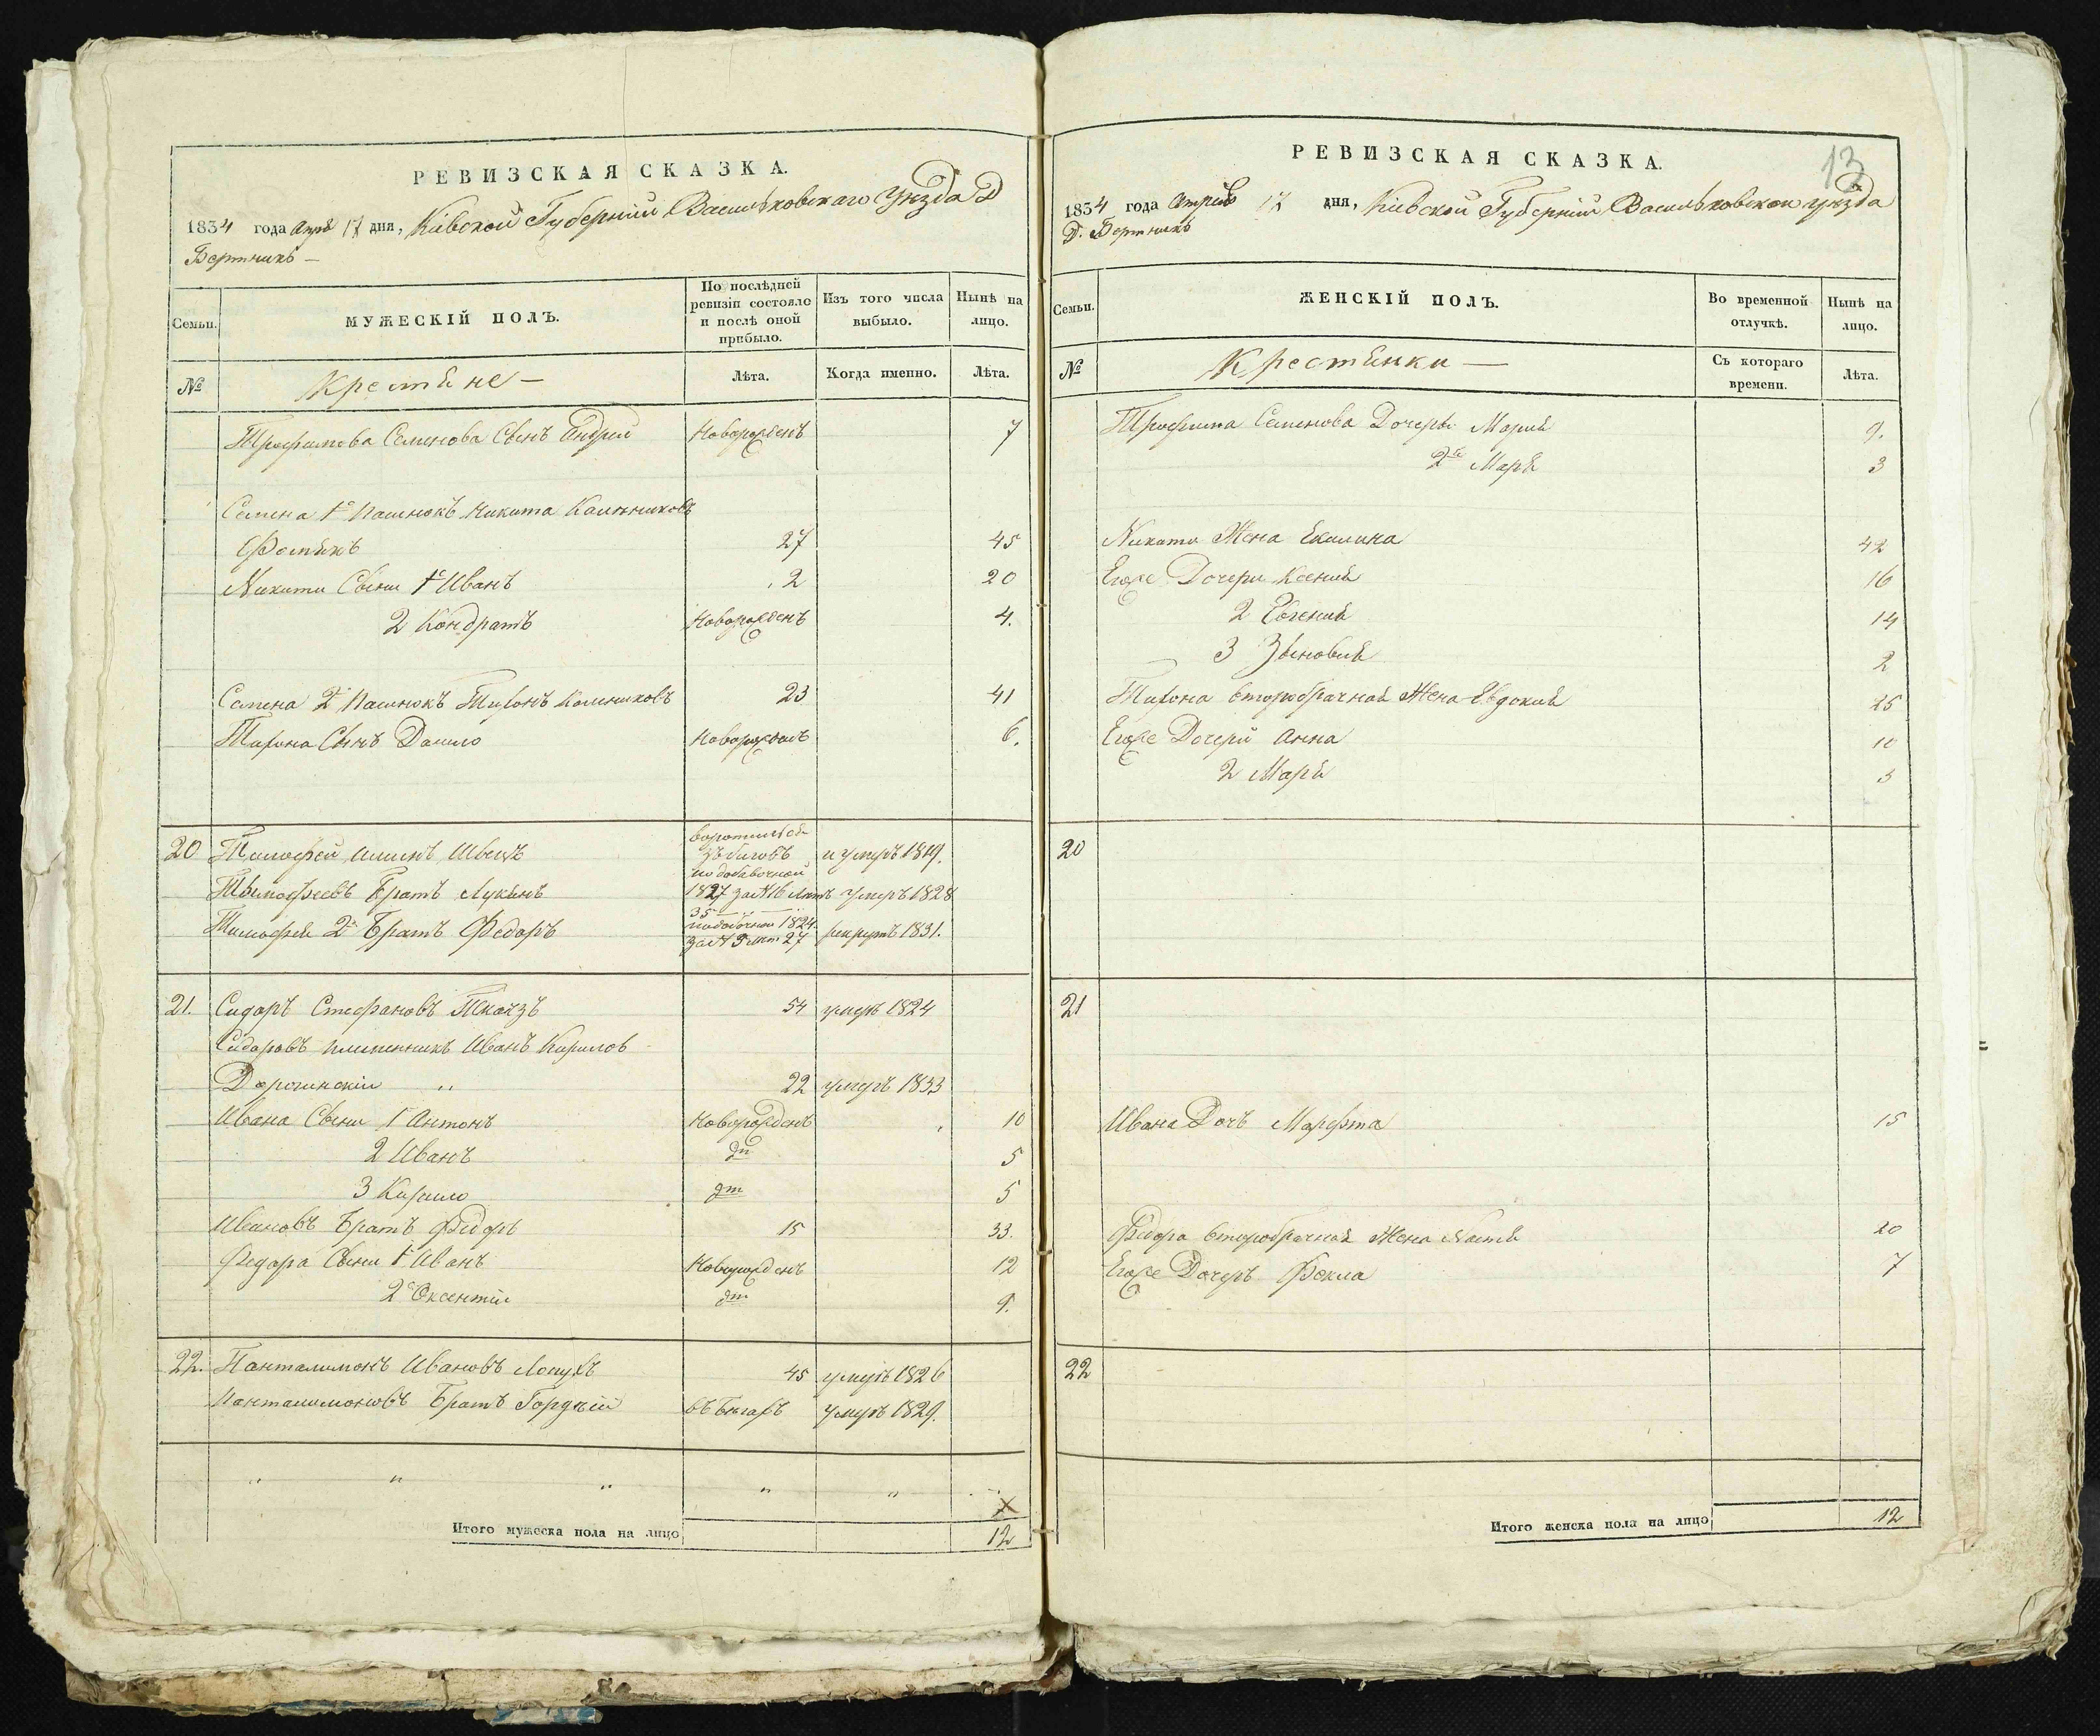 РЕВИЗСКАЯ СКАЗКА.
1834 года Апрѣ 17 дня, Кіевской Губерніи Васильковскаго Уѣзда Д
Бертникъ —
Семьи.
МУЖЕСКІЙ ПОЛЪ.
По послѣдней ревизіи состояло и послѣ оной прибыло.
Изъ того числа выбыло.
Нынѣ на лицо.
№
Крестяне —
Лѣта.
Когда именно.
Лѣта.
Трофимова Семенова Сынъ Андрей Новорожденъ 7
Семена 1й Пасинокъ Никита
27 45
Никити Сыни 1й Иванъ 2 20
2 Кондратъ Новорожденъ 4.
Семена 2й Пасинокъ Тихонъ 23 41
Тихона Сынъ Данило Новорожденъ 6.
20 Тимофей Швецъ
и умеръ 1819.
по добавочной
Тимофеевъ Братъ Лукянъ 1827 за №16 Лѣтъ умеръ 1828
35
Тимофея 2й Братъ Федоръ 1824. рекрутъ 1831.
за № 9 лѣт 27
21. Сидоръ Стефановъ Ткачъ 54 умеръ 1824
Сидоровъ племенникъ Иванъ Кирилов
Дорогинскій „ 22 умеръ 1833
Ивана Сыни 1й Антонъ Новорожденъ 10
2 Иванъ 5
3 Кирило 5
Ивановъ Братъ Федоръ 15 33.
Федора Сыни 1й Иванъ Новорожденъ 12
2й Оксентій 9.
22. Панталимонъ Ивановъ Лопухъ 45 умеръ 1826
Панталимоновъ Братъ Гордѣй въ бѣгахъ умеръ 1829.
„ „ „ „ „
Итого мужеска пола на лицо 12
РЕВИЗСКАЯ СКАЗКА.
13
1834 года Апрѣля 17 дня, Кіевской Губерніи Васильковскои уѣзда
Д. Бертникъ
Семьи.
ЖЕНСКІЙ ПОЛЪ.
Во временной отлучкѣ.
Нынѣ на лицо.
№
Крестянки —
Съ котораго времени.
Лѣта.
Трофима Семенова Дочеры Марія 9.
2я Маря 3
Никити Жена Екилина 42
Егоже Дочери Ксенія 16
2 Евгенія 14
3 Зѣновия 2
Тихона второбрачная Жена Евдокия 25
Егоже Дочери Анна 10
2 Маря 3
20
21
Ивана Дочъ Марфта 15
Федора второбрачная Жена Настя 20
Егоже Дочеръ Фекла 7
22
Итого женска пола на лицо 12